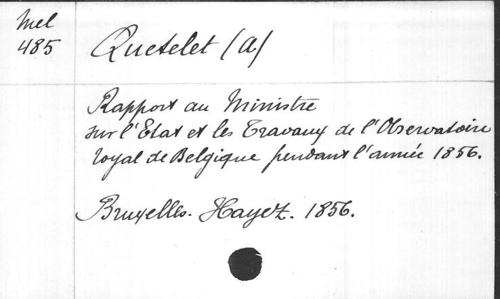 Mel
485
Quetelet (A)
Rapport au Ministre
sur l'Etat et les Travaux de l'Observatoire
royal de Belgique pendant l'année 1856.
Bruxelles. Hayez. 1856.